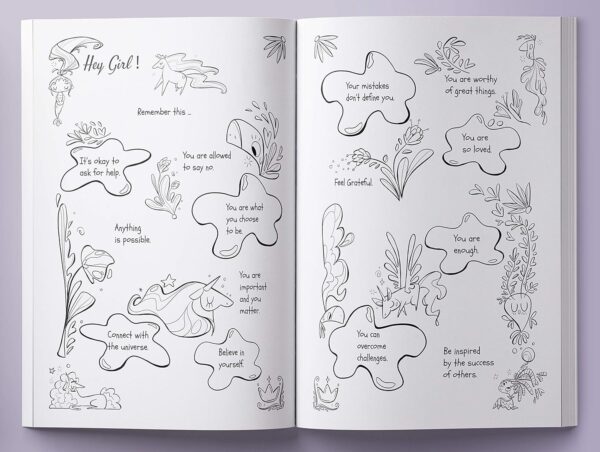 Hey Girl!
Remember this ...
It's okay to
ask for help.
You are allowed
to say no.
You are what
you choose
to be.
Anything
is possible.
You are
important
and you
matter.
Connect with
the universe.
Believe in
yourself.
Your mistakes
don't define you.
You are worthy
of great things.
You are
so loved.
Feel Grateful.
You are
enough.
You can
overcome
challenges.
Be inspired
by the success
of others.